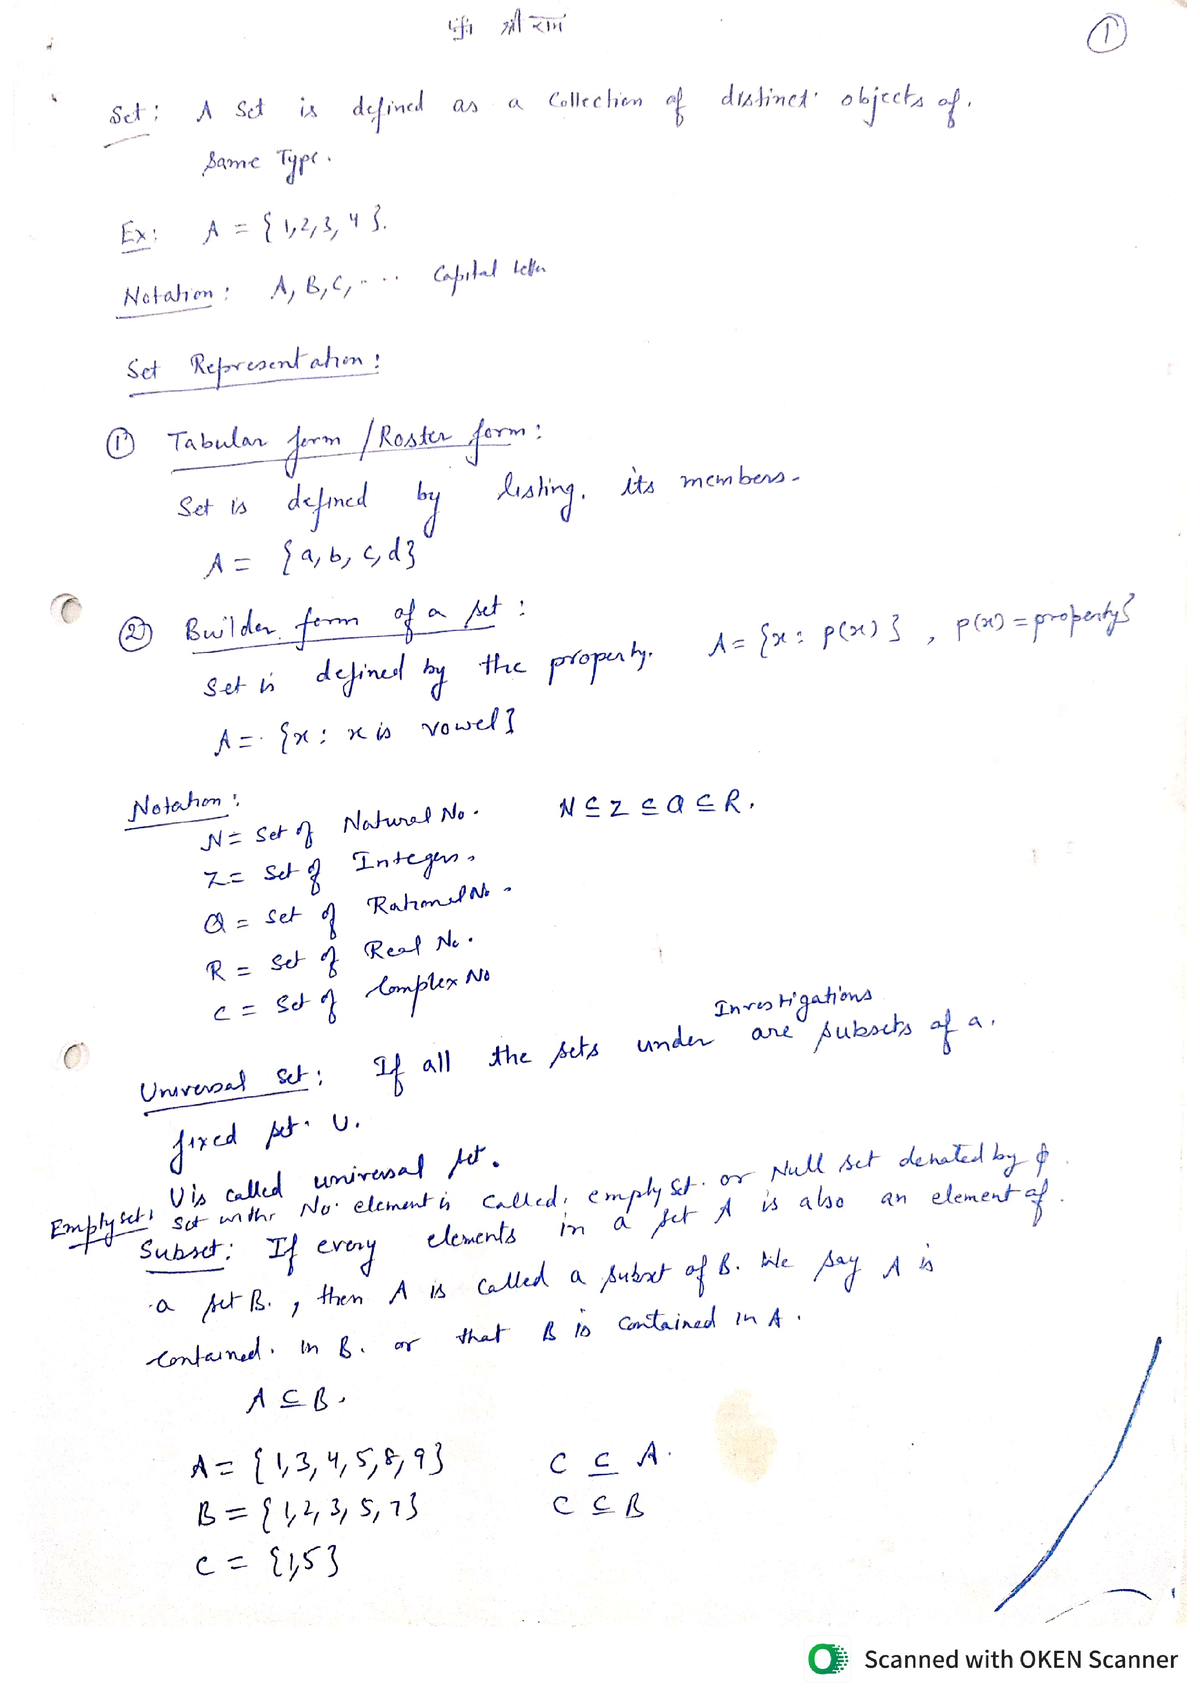 श्री राम
1
Set: A set is defined as a Collection of distinct objects of
same Type.
Ex: A = {1,2,3,4}.
Notation: A, B, C, ---- Capital letter
Set Representation:
① Tabular form / Roster form:
Set is defined by listing its members.
A = {a, b, c, d}
② Builder form of a set:
Set is defined by the property. A = {x : p(x)}, p(x) = property}
A = {x : x is vowel}
Notation:
N = Set of Natural No. N ⊆ Z ⊆ Q ⊆ R.
Z = Set of Integers.
Q = Set of Rational No.
R = Set of Real No.
C = Set of Complex No
Universal Set: If all the sets under Investigations are subsets of a
fixed set U.
U is called universal set.
Empty set: Set with No element is called empty set or Null set denoted by ϕ.
Subset: If every elements in a set A is also an element of
a set B, then A is called a subset of B. We say A is
contained in B. or that B is contained in A.
A ⊆ B.
A = {1,3,4,5,8,9} C ⊆ A.
B = {1,2,3,5,7} C ⊆ B
C = {1,5}
Scanned with OKEN Scanner